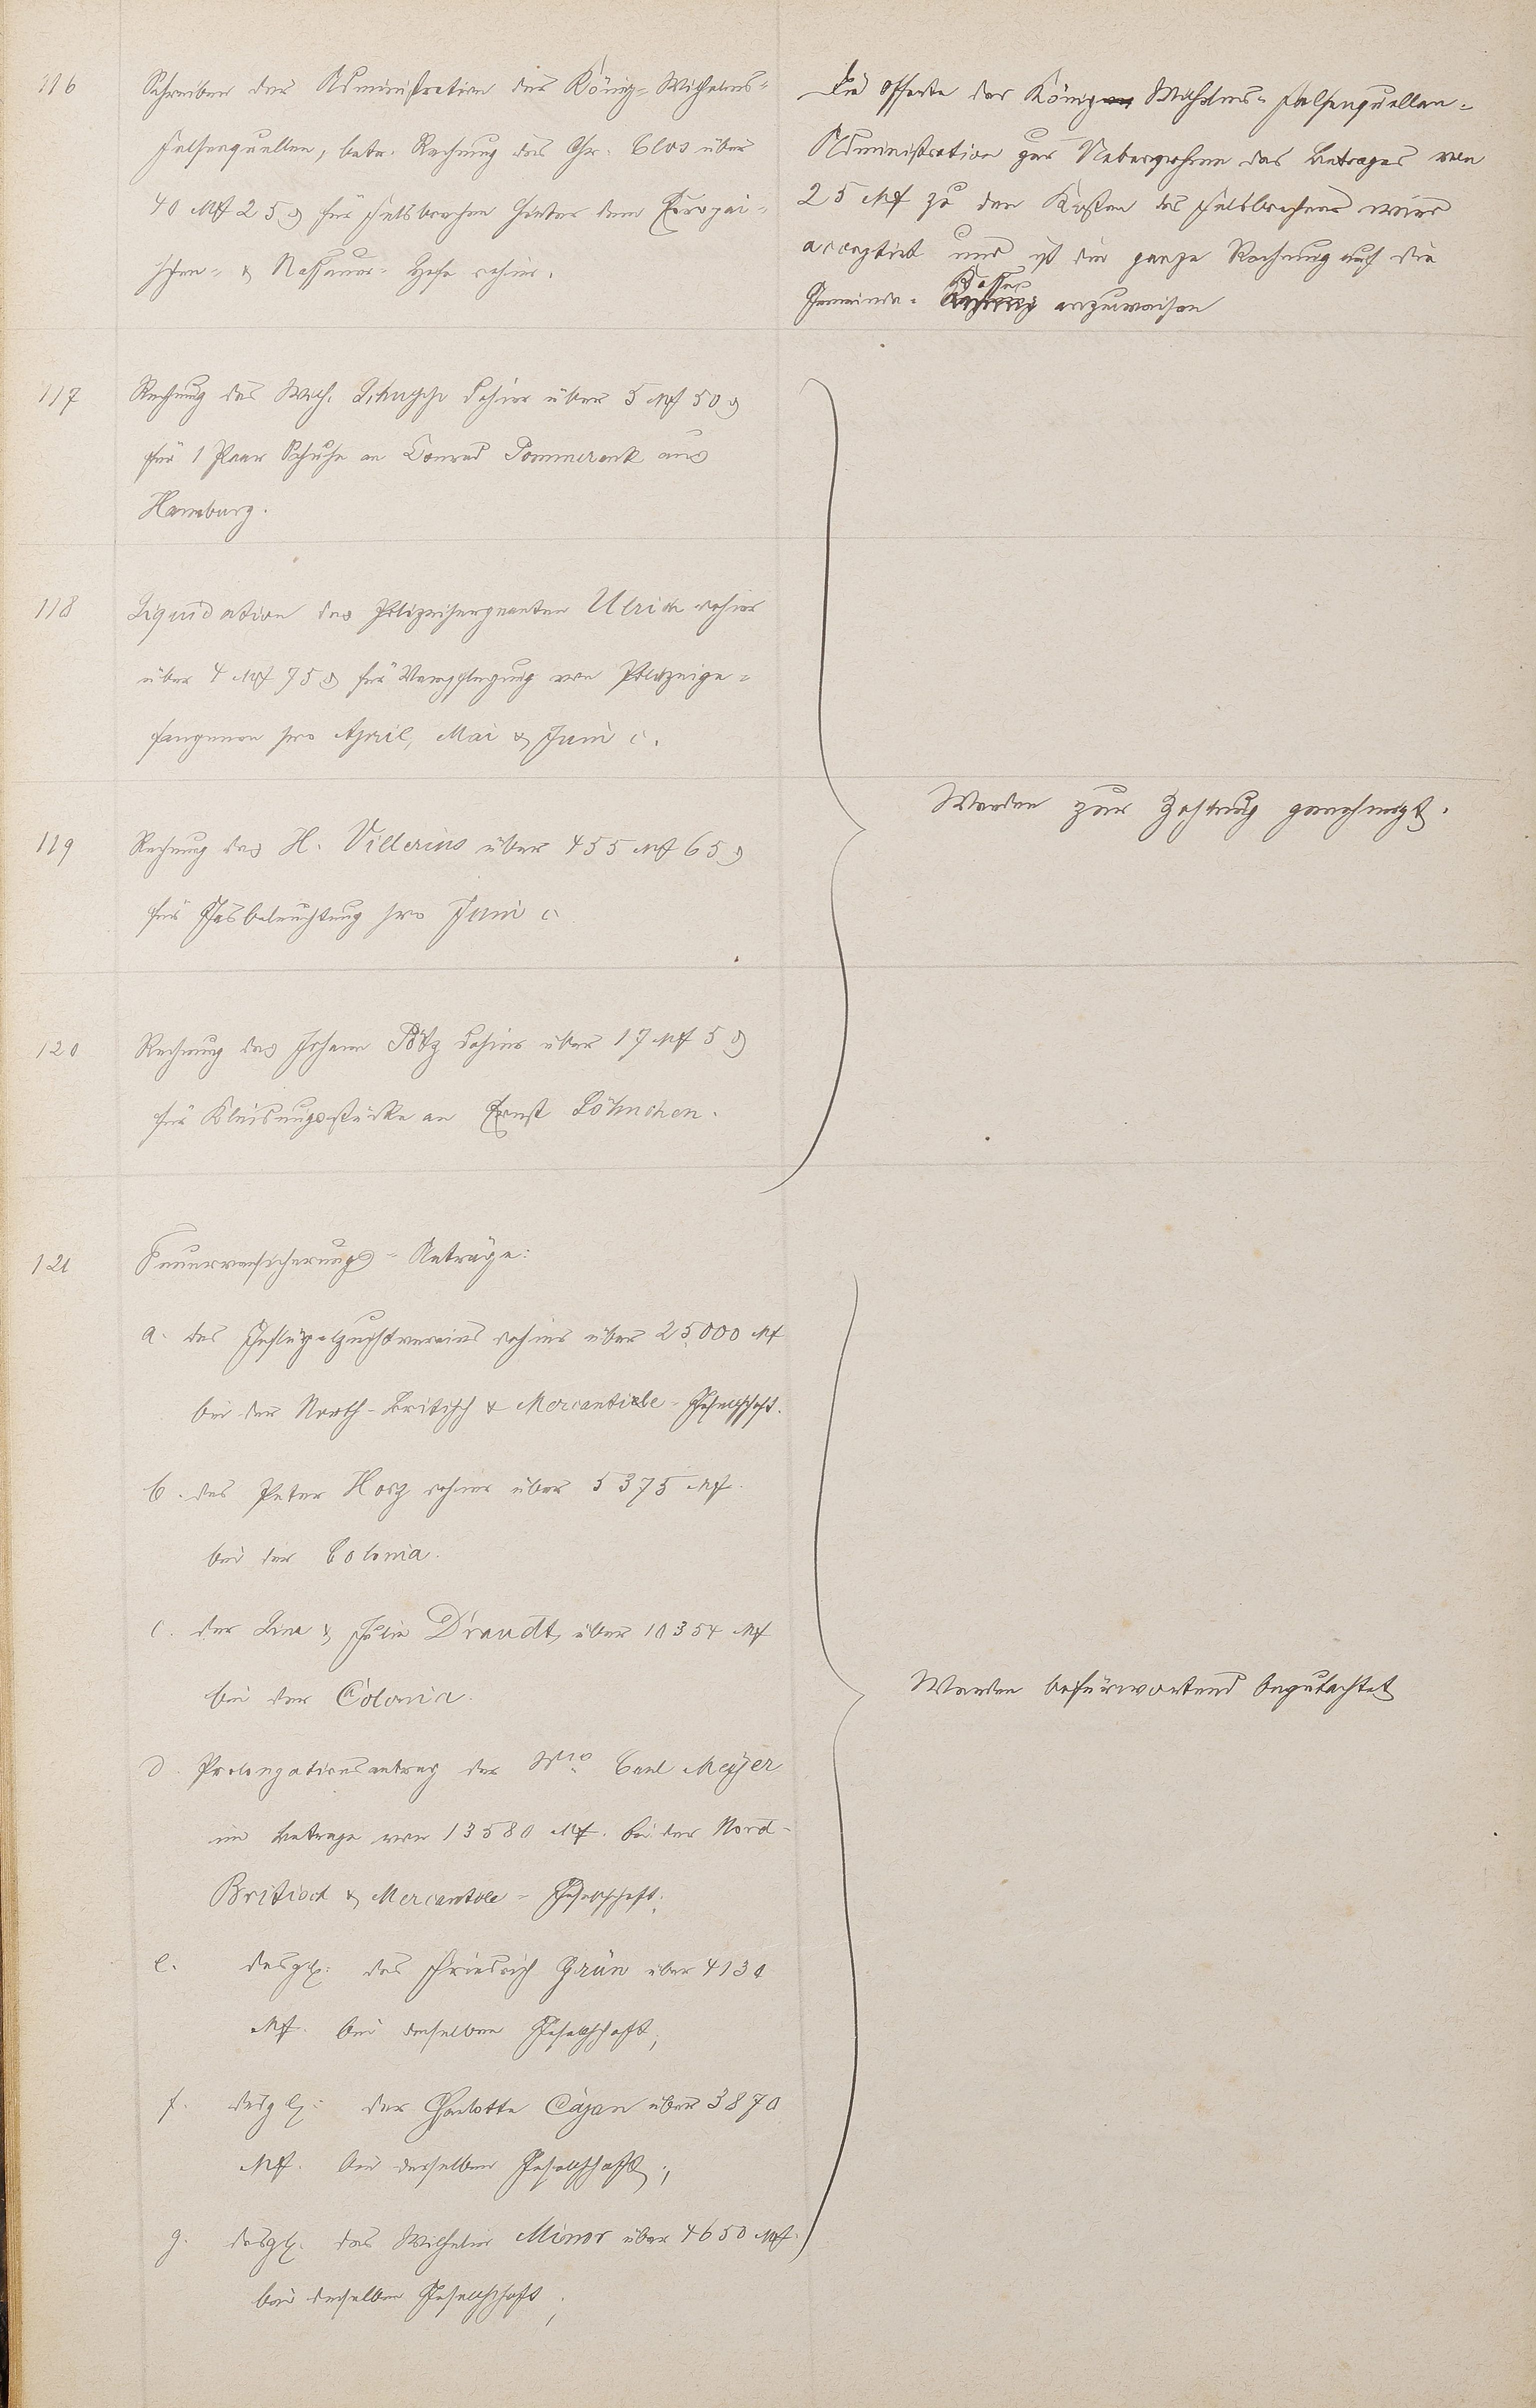 116
Schreiben der Administration der König-Wilhelms-
Felsenquellen, betr. Rechnung des Chr. Clos über
40 Mk 25 ₰ für Felsbrechen hinter dem Europäi-
schen- & Nassauer-Hofe dahier.
Die Offerte der König Wilhelms-Felsenquellen-
Administration zur Uebernahme des Betrages von
25 Mk zu den Kosten des Felsbrechens wird
acceptirt und ist die ganze Rechnung auf die
Gemeinde-Kasse anzuweisen
117
Rechnung des Wilh. dahier über 5 Mk 50 ₰
für 1 Paar Schuhe an Conrad Pommerenk aus
Hamburg.
118
Liquidation des Polizeisergeanten Ulrich dahier
über 4 Mk 75 ₰ für Verpflegung von Polizeige-
fangenen pro April, Mai & Juni c.
119
Rechnung des H. Villerius über 455 Mk 65 ₰
für Gasbeleuchtung pro Juni c
Werden zur Zahlung genehmigt.
120
Rechnung des Johann Pötz dahier über 17 Mk 5 ₰
für Kleidungsstücke an Ernst Löhnchen.
121
Feuerversicherungs-Anträge:
a. des Geflügelzuchtvereins dahier über 25,000 Mk
bei der North-Britisch & Mercantile-Gesellschaft.
b. des Peter dahier über 5375 Mk.
bei der Colonia.
c. der Lina & Julie Draudt, über 10354 Mk
bei der Colonia.
d. Prolongationsantrag der Wwe. Carl Meyer
im Betrage von 13580 Mk. bei der Nord-
Britisch & Mercantile-Gesellschaft;
e. desgl. des Friedrich Grün über 4130
Mk. bei derselben Gesellschaft;
f. desgl. der Charlotte Cajan über 3870
Mk. bei derselben Gesellschaft;
g. desgl. des Wilhelm Minor über 4650 Mk.
bei derselben Gesellschaft;
Werden befürwortend begutachtet